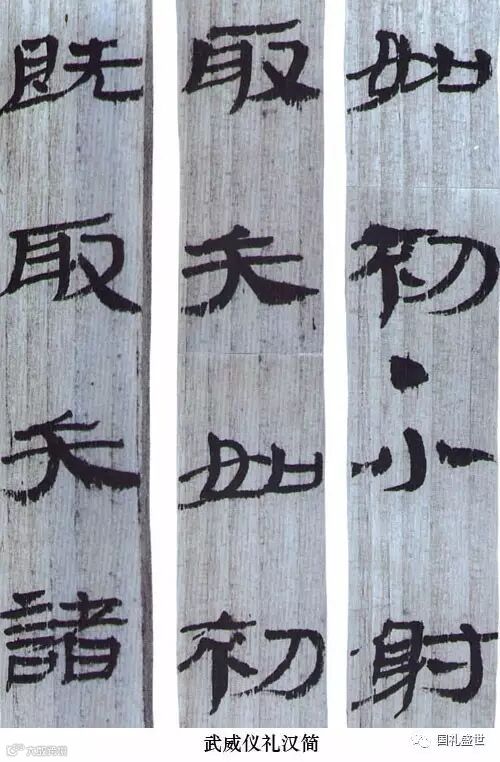 如初·小射
取矢如初
既取矢諸
武威仪礼汉简
国礼盛世